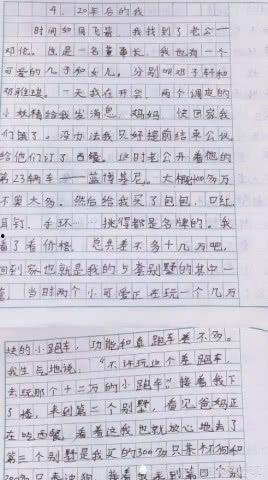 4. 20年后的我
时间如周飞晨，我找到了老公一
邓伦。也是一名董事长，我也有一个
可爱的儿子和女儿。分别叫邓子轩和
邓雅琪。一天我在开会，两个调皮的
小妖精给我发消息，妈妈，快回家我
们饿了。没办法我只好提前结束会议
给他们订了西餐，这时老公开着他的
第23辆车 蓝博基尼。大概100多万
不算太多。然后给我买了包包，口红
耳钉，手环……挑得都是名牌的。我
看了看价格，总共差不多十几万吧，
回到家也就是我的5套别墅的其中一
套，当时两个小可爱正在玩一个几万
块的小跑车，功能和真跑车差不多。
我生气地说：“不许玩这个差跑车，
去玩那个十二万的小跑车”接着我下
了楼，来到第二个别墅，看见爸妈正
在吃西餐，看着这我也就放心地去了
第三个别墅是我买的300多只茶杯狗和